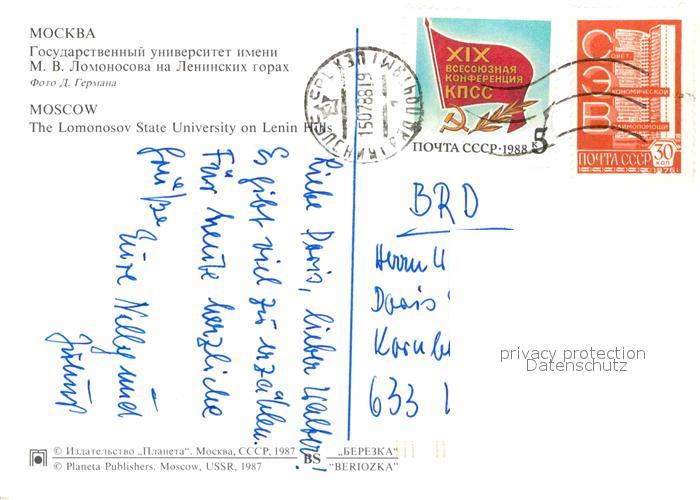 МОСКВА
Государственный университет имени
М. В. Ломоносова на Ленинских горах
Фото Д. Германа
MOSCOW
The Lomonosov State University on Lenin Hills
XIX
ВСЕСОЮЗНАЯ
КОНФЕРЕНЦИЯ
КПСС
ПОЧТА СССР·1988 5 к
СОВЕТ
ЭКОНОМИЧЕСКОЙ
ВЗАИМОПОМОЩИ
ПОЧТА СССР 30 КОП
1976
15078819
Liebe Doris, lieber Walter!
Es gibt viel zu erzählen.
Für heute herzliche
Grüße Eure Nelly und
BRD
Herrn
Doris
Kornbe
633
privacy protection
Datenschutz
© Издательство „Планета“. Москва, СССР, 1987
© Planeta Publishers. Moscow, USSR, 1987
BS
„БЕРЕЗКА“
"BERIOZKA"